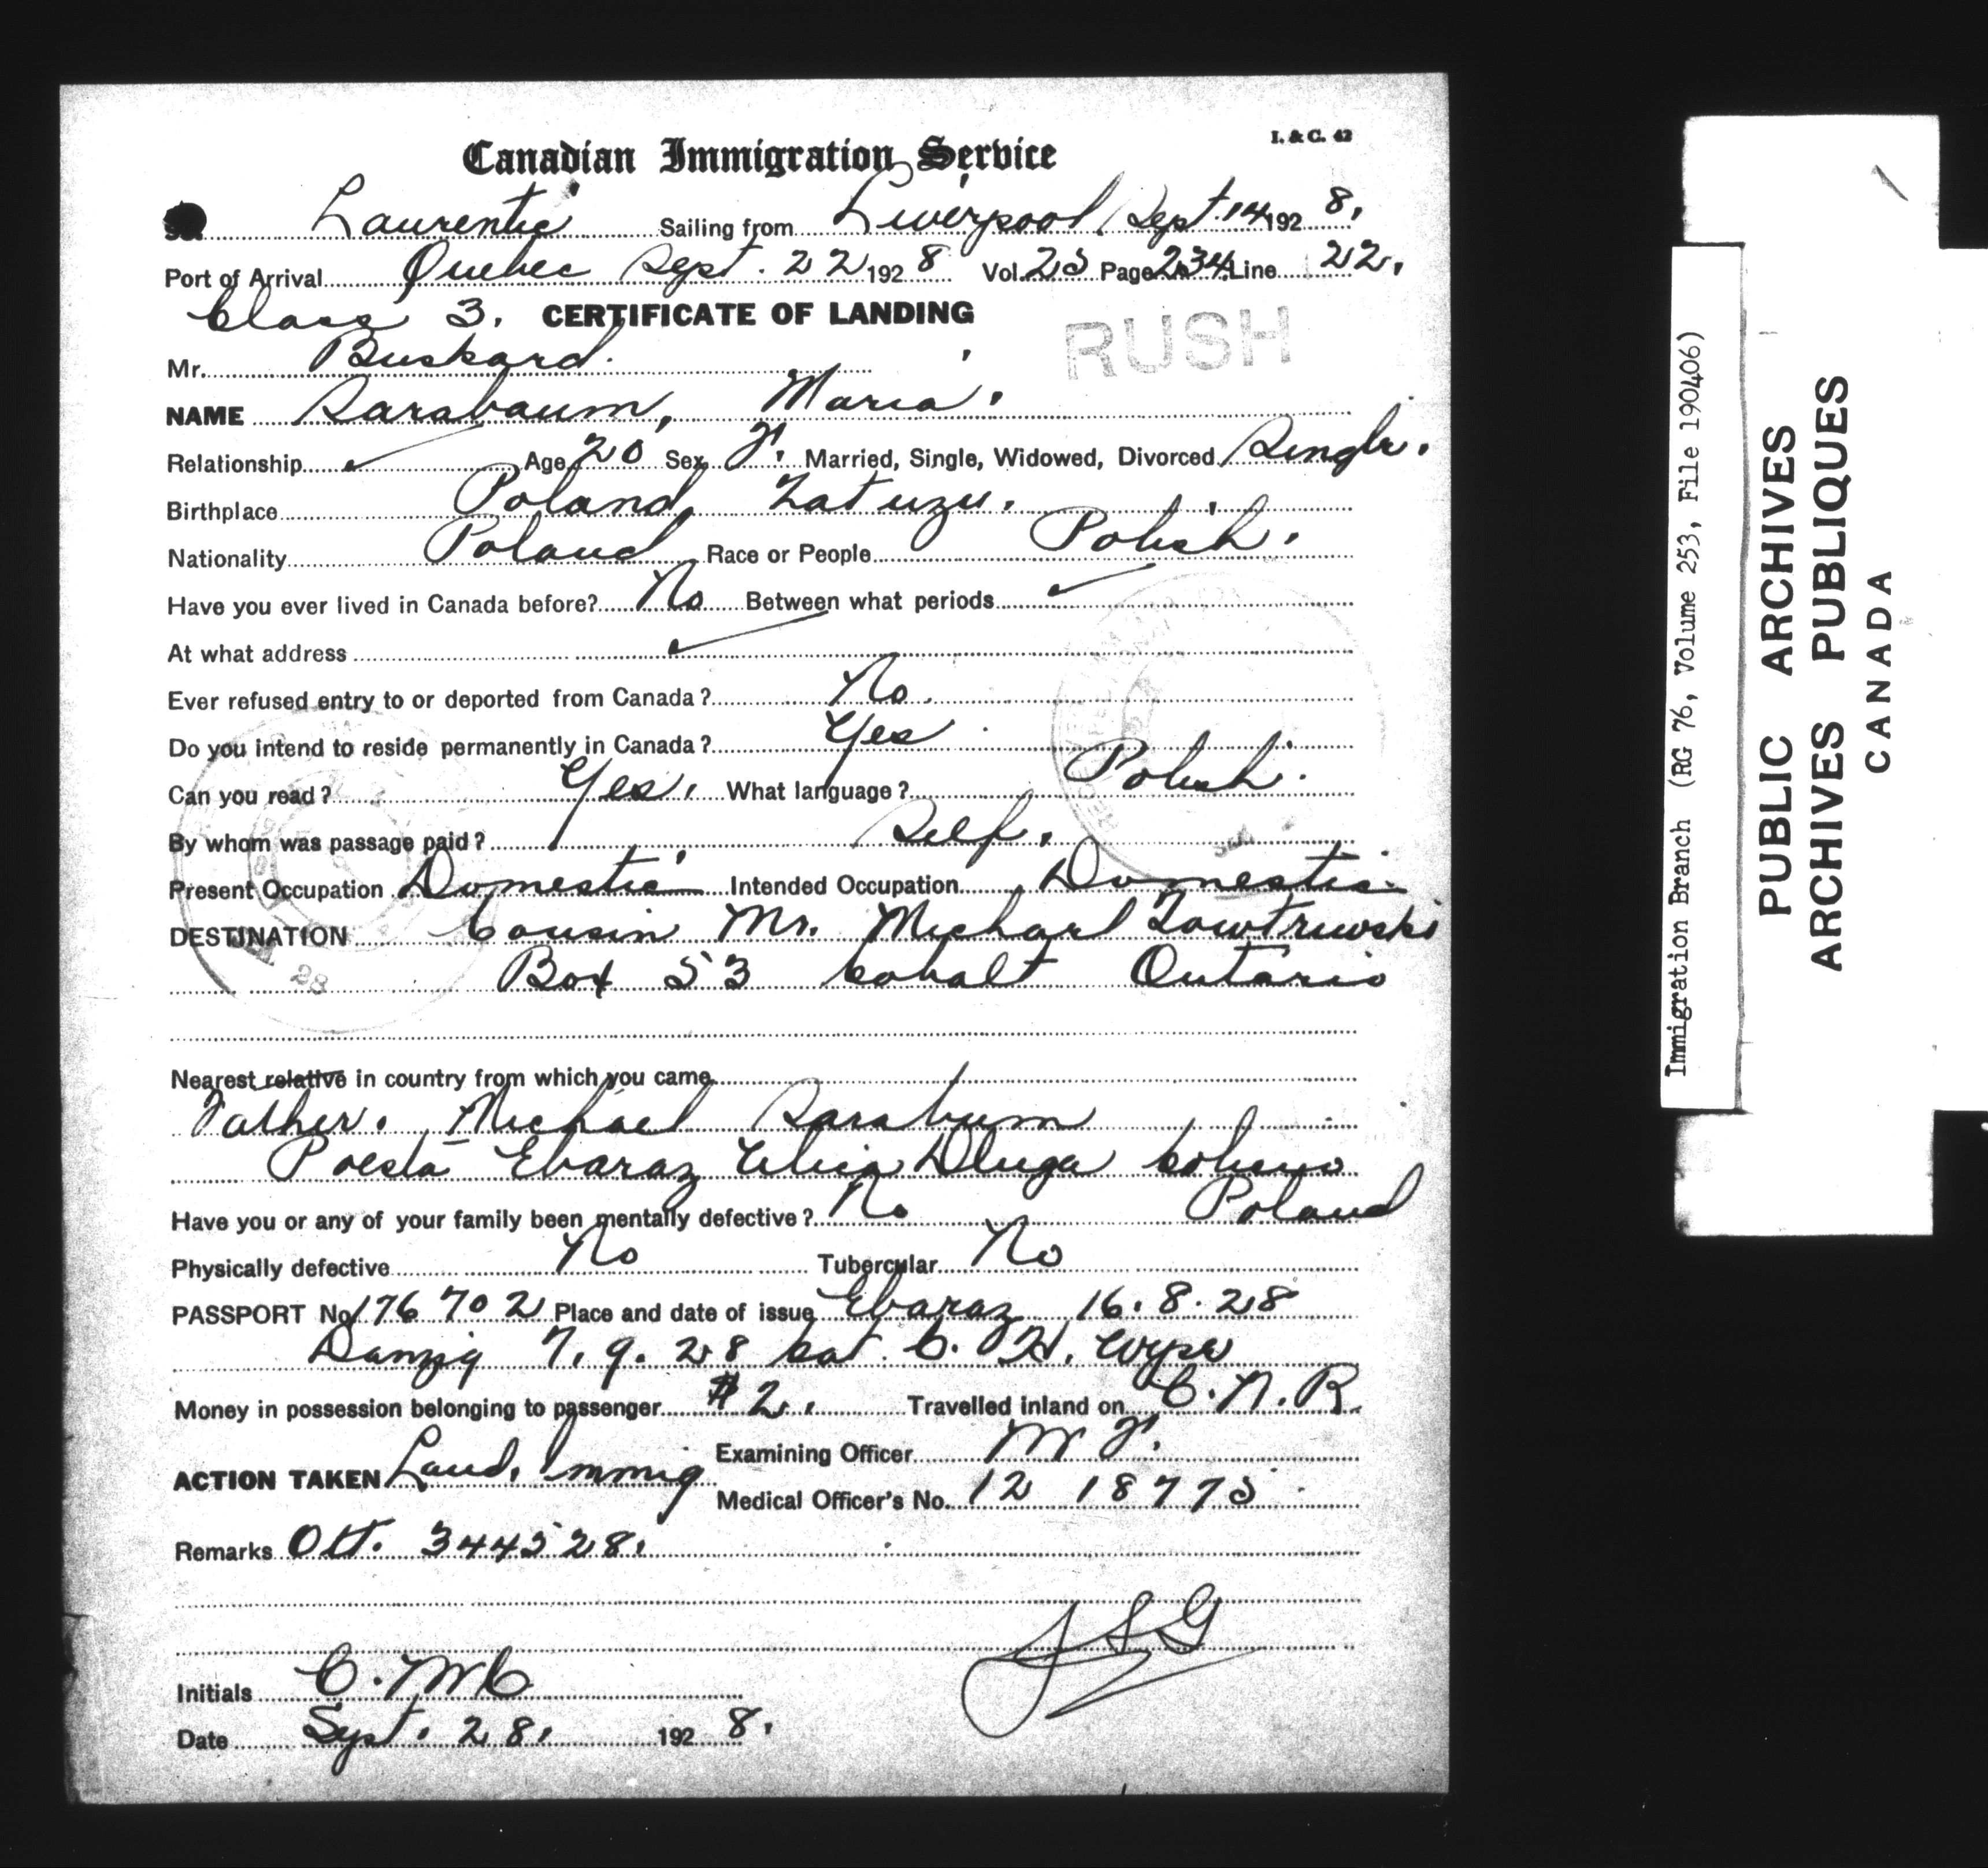 I. & C. 42
Canadian Immigration Service
S.S. Laurentic Sailing from Liverpool Sept. 14 192 8.
Port of Arrival Quebec Sept. 22 192 8 Vol. 25 Page 234 Line 22.
Class 3. CERTIFICATE OF LANDING
RUSH
Mr. Buskard.
NAME Sarabaum, Maria.
Relationship Age 20 Sex F. Married, Single, Widowed, Divorced Single.
Birthplace Poland, Zatuzu.
Nationality Poland Race or People Polish.
Have you ever lived in Canada before? No Between what periods
At what address
Ever refused entry to or deported from Canada? No.
Do you intend to reside permanently in Canada? Yes
Can you read? Yes. What language? Polish.
By whom was passage paid? Self.
Present Occupation Domestic Intended Occupation Domestic
DESTINATION Cousin Mr. Michael Zowtruwski
Box 53 Cobalt Ontario
28
Nearest relative in country from which you came
Father. Michael Sarabum
Poesta Ebaraz Dluga
Poland
Have you or any of your family been mentally defective? No
Physically defective No Tubercular No
PASSPORT No. 176702 Place and date of issue Ebaraz 16.8.28
Danzig 7.9.28 C. H.
Money in possession belonging to passenger $2. Travelled inland on C.N.R.
Examining Officer W F.
ACTION TAKEN Land. Immig
Medical Officer's No. 12 18775
Remarks Ott. 344528.
JSG
Initials C. McC
Date Sept. 28. 192 8.
Immigration Branch (RG 76, Volume 253, File 190406)
PUBLIC ARCHIVES
ARCHIVES PUBLIQUES
CANADA